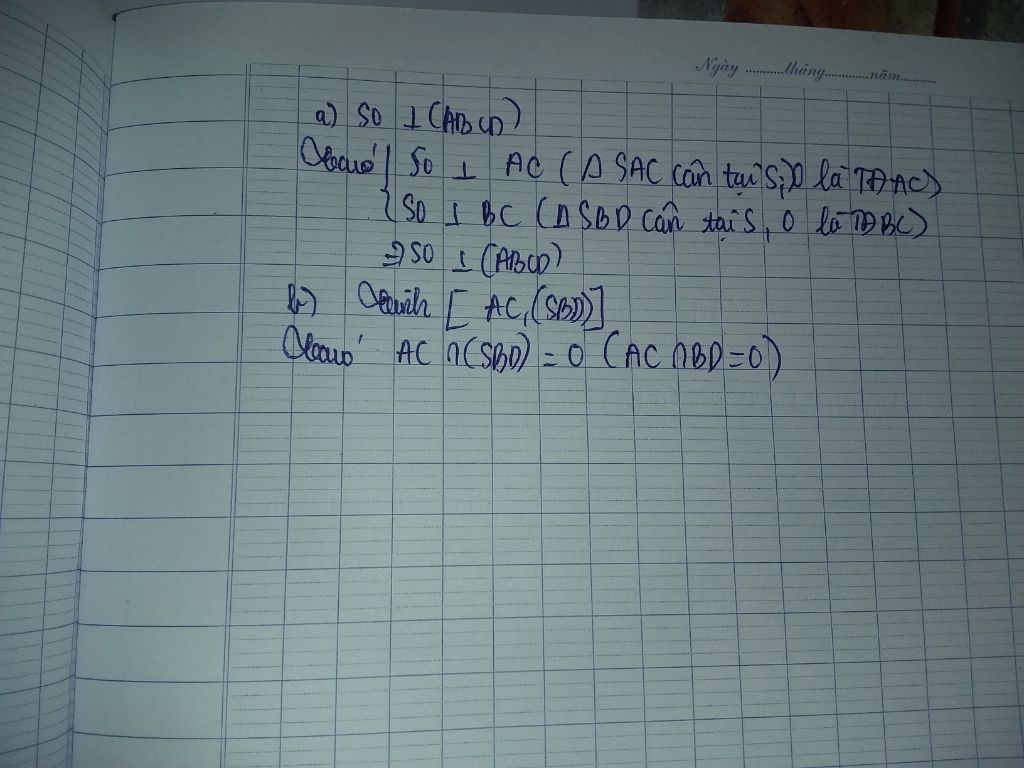 Ngày ...........tháng............năm..........
a) SO ⊥ (ABCD)
Ta có { SO ⊥ AC (Δ SAC cân tại S, O là TĐ AC)
SO ⊥ BC (Δ SBD cân tại S, O là TĐ BC)
⇒ SO ⊥ (ABCD)
b) Tính [ AC, (SBD)]
Ta có AC ∩ (SBD) = O (AC ∩ BD = O)